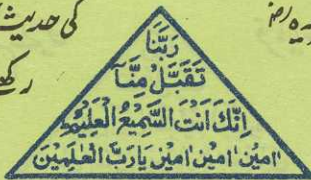 کی حدیث
رکھے
رَبَّنَا
تَقَبَّلْ مِنَّآ
اِنَّكَ اَنْتَ السَّمِيْعُ الْعَلِيْمُ
اٰمِيْنْ اٰمِيْنْ اٰمِيْنْ يَارَبَّ الْعٰلَمِيْنَ